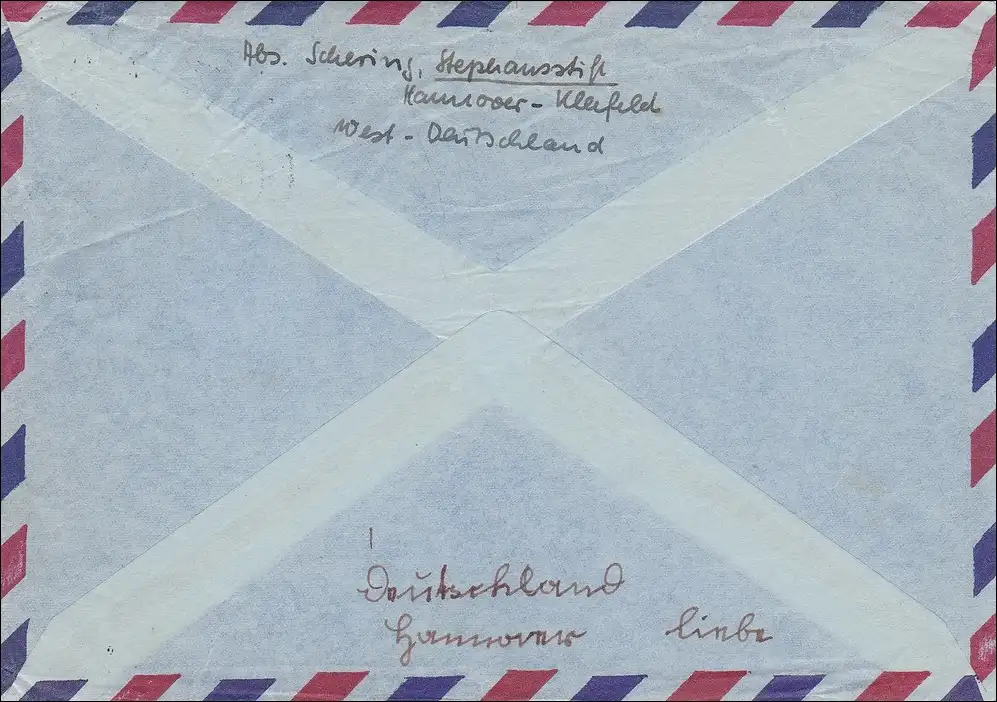 Abs. Schering, Stephansstift
Hannover-Kleefeld
West-Deutschland
Deutschland
Hannover liebe